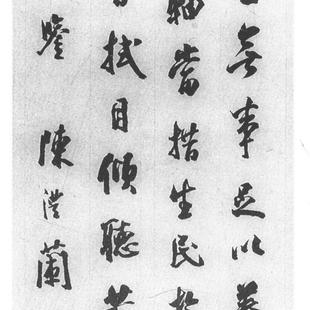 無事足以
軸當措生民於
拭目傾聽
鑒 陳澧蘭